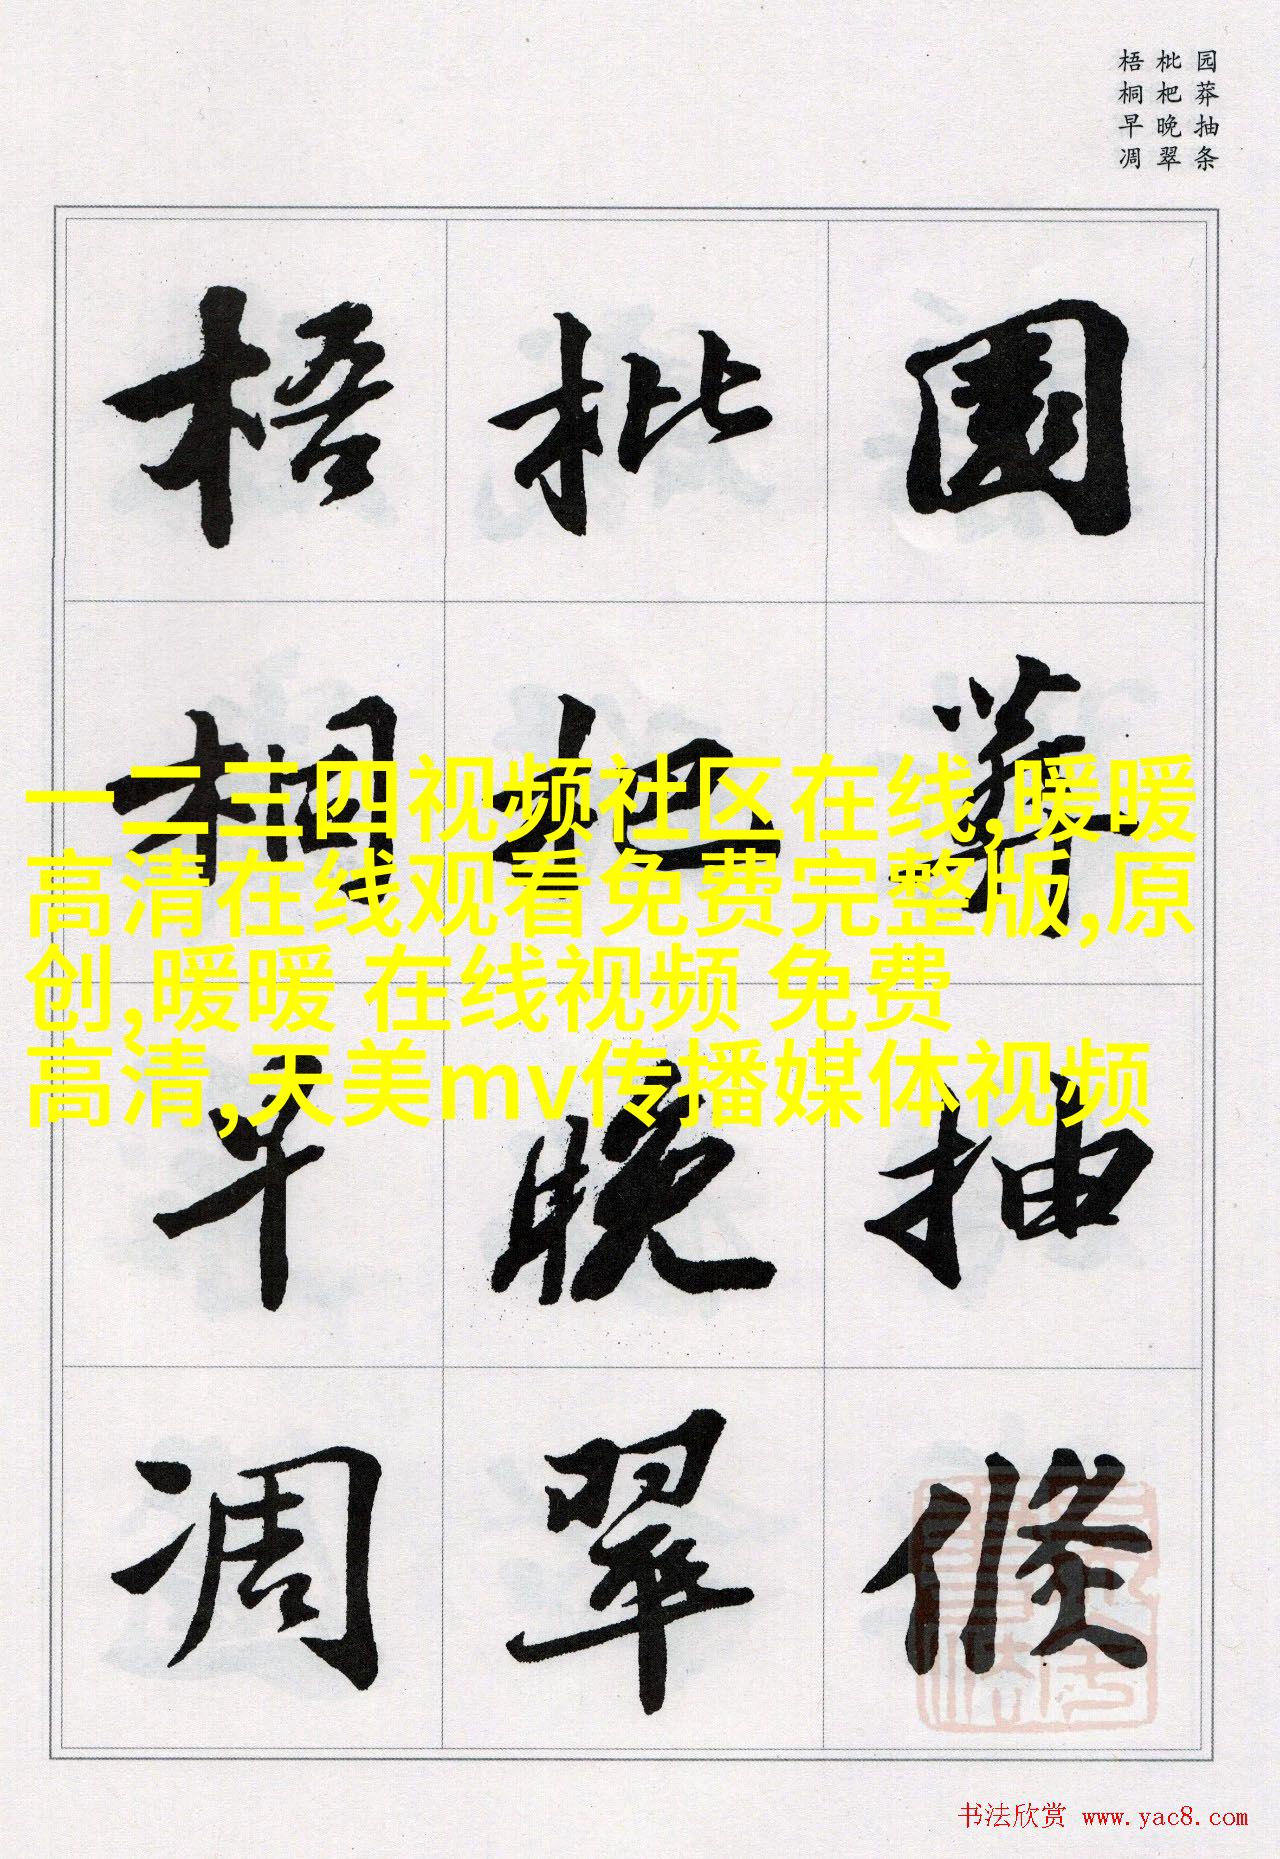 园莽抽条
枇杷晚翠
梧桐早凋
園莽抽條
枇杷晚翠
梧桐早凋
一二三四视频社区在线,暖暖
高清在线观看免费完整版,原
创,暖暖 在线视频 免费
高清,天美mv传播媒体视频
书法欣赏 www.yac8.com